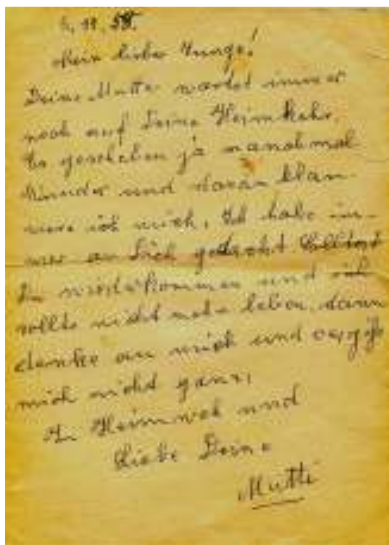 6.11.58.
Mein lieber Junge!
Deine Mutter wartet immer
noch auf Deine Heimkehr.
Es geschehen ja manchmal
Wunder und daran klam-
mere ich mich, Ich habe im-
mer an Dich gedacht Solltest
Du wiederkommen und ich
sollte nicht mehr leben, dann
denke an mich und vergiß
mich nicht ganz,
In Heimweh und
Liebe Deine
Mutti